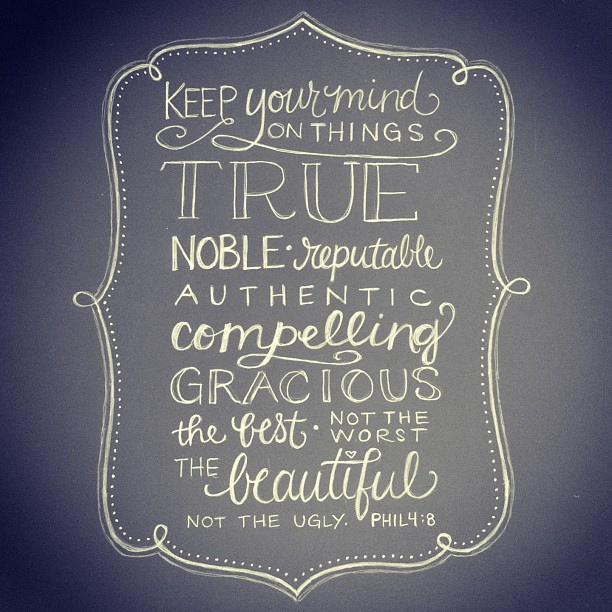 KEEP your mind
ON THINGS
TRUE
NOBLE · reputable
AUTHENTIC
compelling
GRACIOUS
the best · NOT THE
WORST
THE beautiful
NOT THE UGLY. PHIL 4:8